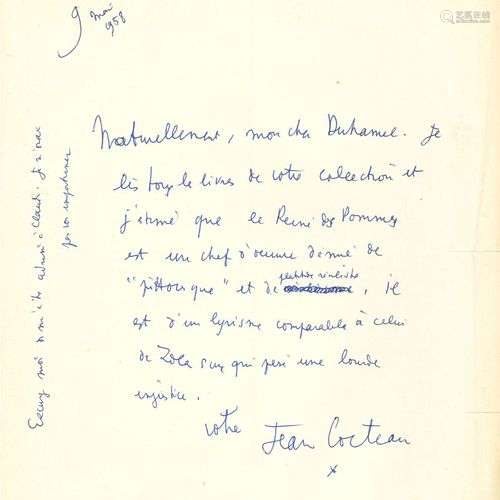 9 mai
1958
Naturellement, mon cher Duhamel. Je
lis tous le livres de votre collection et
j'estime que la Reine des Pommes
est un chef d'œuvre donné de
"pittoresque" et de platitude réaliste, il
est d'un lyrisme comparable à celui
de Zola sur qui pese une lourde
injustice.
votre
Jean Cocteau
Excusez moi
à Claude. Je n'avais
pas
艺术家